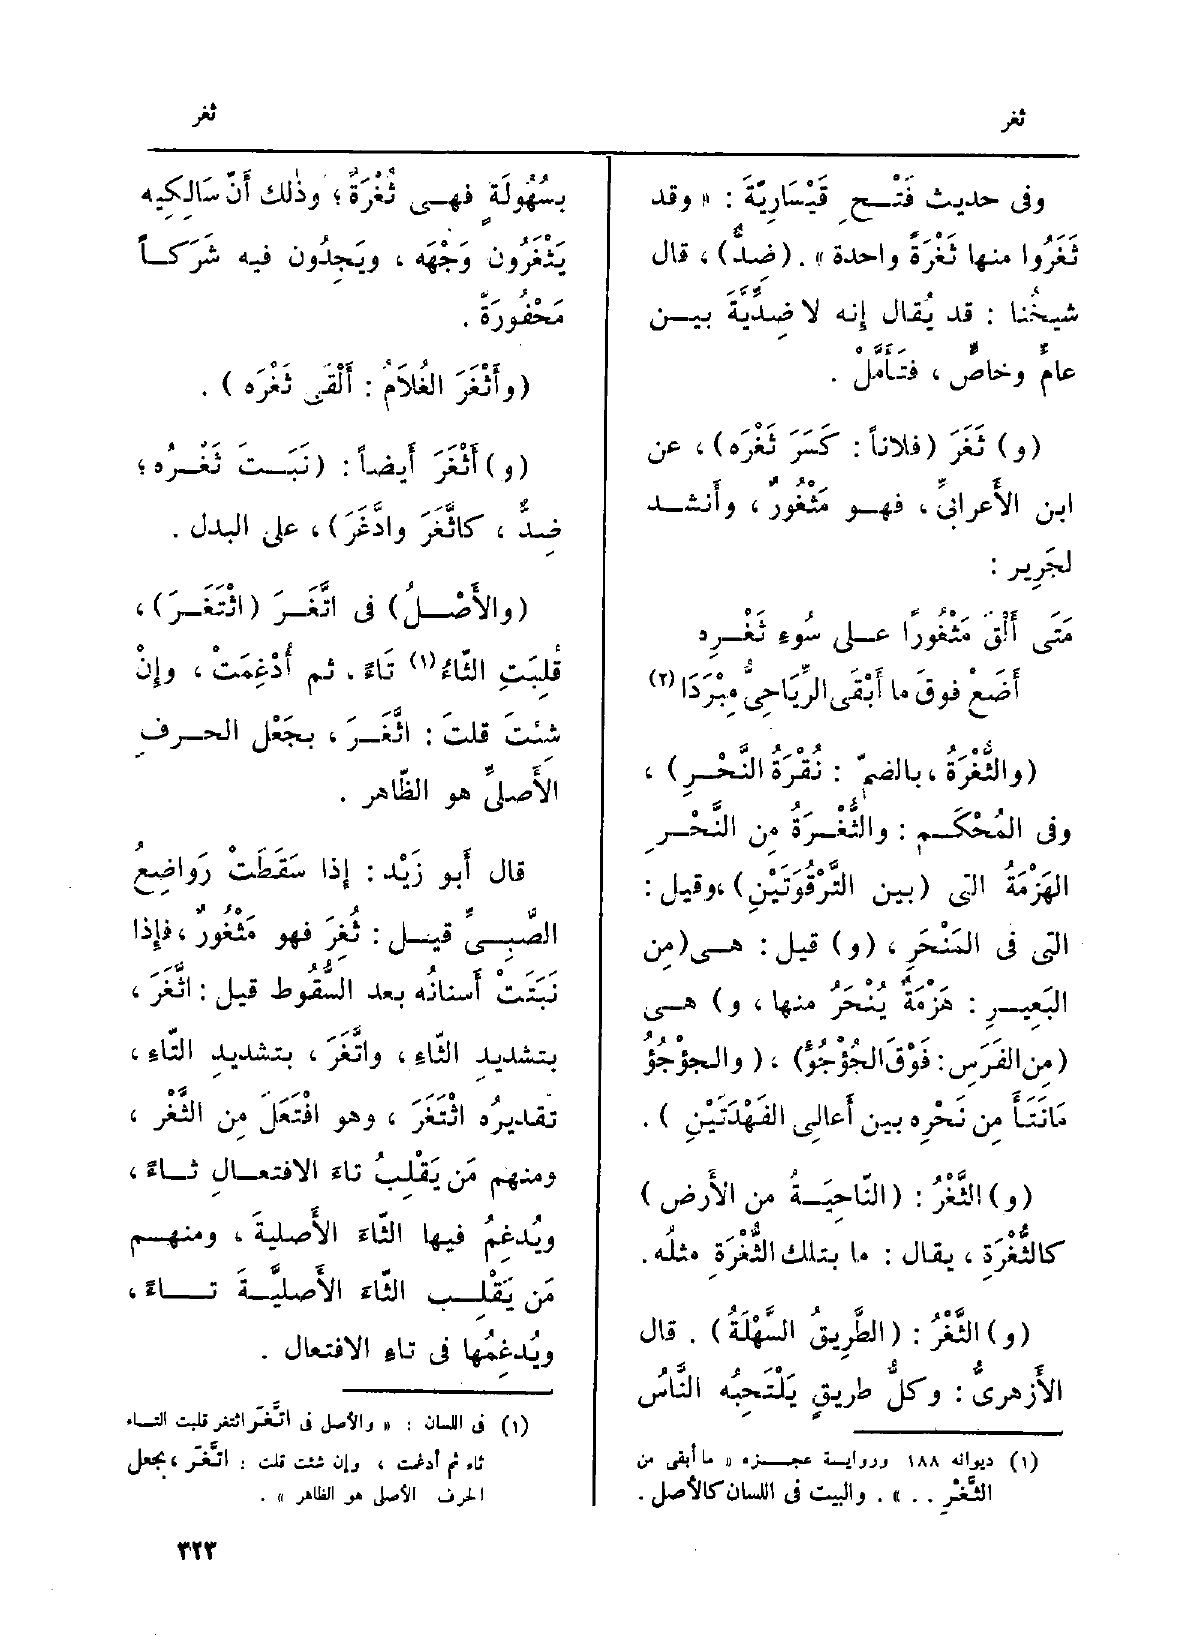 ثغر
ثغر
وفى حديث فَتْـحِ قَيْسَارِيّةَ : « وقد
ثَغَرُوا منها ثَغْرَةً واحدة » . (ضِدٌّ) ، قال
شيخُنا : قد يُقال إنه لا ضِدِّيَّةَ بيـن
عامٍّ وخاصٍّ ، فتَأَمَّلْ .
(و) ثَغَرَ (فلاناً : كَسَرَ ثَغْرَه) ، عن
ابن الأَعرابيِّ ، فهـو مَثْغُورٌ ، وأَنشـد
لجَرِير :
مَتَى أَلْقَ مَثْغُورًا علـى سُوءِ ثَغْـرِه
أَضَعْ فوقَ ما أَبْقَى الرِّيَاحِيُّ مِبْرَدَا (٢)
(والثُّغْرَةُ ، بالضمّ : نُقْرَةُ النَّحْـرِ) ،
وفى المُحْكَـمِ : والثُّغْـرَةُ مِن النَّحْـرِ
الهَزْمَةُ التى (بين التَّرْقُوَتَيْنِ) ،وقيل :
التى فى المَنْحَرِ ، (و) قيل : هـى(مِن
البَعِيـرِ : هَزْمَةٌ يُنْحَرُ منها ، و) هـى
(مِن الفَرَسِ : فَوْقَ الجُؤْجُؤِ) ، (والجؤْجُؤُ
مَانَتَأَ مِن نَحْرِه بين أَعالِى الفَهْدَتَيْنِ ) .
(و) الثَّغْرُ : (النّاحِيَـةُ من الأَرض )
كالثُّغْرَةِ ، يقال : ما بتلك الثُّغْرَةِ مثلُه .
(و) الثَّغْرُ : (الطَّرِيقُ السَّهْلَةُ) . قال
الأَزهرىُّ : وكلُّ طريقٍ يَلْتَحِبُه النّاسُ
(١) ديوانه ١٨٨ وروايـة عجـزه « ما أبقى من
الثَّغْرِ . . » . والبيت فى اللسان كالأصل .
بسُهُولَةٍ فهـى ثُغْرَةٌ ؛ وذٰلك أَنّ سَالِكِيه
يَثْغَرُون وَجْهَه ، ويَجِدُون فيه شَرَكـاً
مَحْفُورَةً .
(وأَثْغَرَ الغُلاَمُ : أَلْقَى ثَغْرَه ) .
(و) أَثْغَرَ أَيضاً : (نَبَـتَ ثَغْـرُه ؛
ضِدٌّ ، كاثَّغَرَ وادَّغَرَ) ، على البدل .
(والأَصْـلُ) فى اتَّغَـرَ (اثْتَغَـرَ) ،
قُلِبَتِ الثّاءُ (١) تَاءً . ثم أُدْغِمَتْ ، وإِنْ
شئتَ قلتَ : اثَّغَـرَ ، بجَعْل الحـرفِ
الأَصلىِّ هو الظّاهر .
قال أَبو زَيْد : إِذا سَقَطَتْ رَواضِعُ
الصَّبِـىِّ قيـل : ثُغِرَ فهو مَثْغُورٌ ، فإِذا
نَبَتَتْ أَسنانُه بعد السُّقُوط قيل : اثَّغَرَ ،
بتشديدِ الثّاءِ ، واتَّغَرَ ، بتشديدِ التّاءِ ،
تقديرُه اثْتَغَرَ ، وهو افْتَعَلَ مِن الثَّغْر ،
ومنهم مَن يَقْلِبُ تاءَ الافتعـالِ ثـاءً ،
ويُدغِمُ فيها الثّاءَ الأَصليةَ ، ومنهـم
مَن يَقْلِـب الثّاءَ الأَصليَّـةَ تـاءً ،
ويُدغِمُها فى تاءِ الافتعال .
(١) فى اللسان : « والأصل فى اتَّغَرَ اثتغر قلبت التـاء
ثاء ثم أدغمت ، وإن شئت قلت : اتَّغَرَ ، بجعل
الحرف الأصلى هو الظاهر » .
٣٢٣